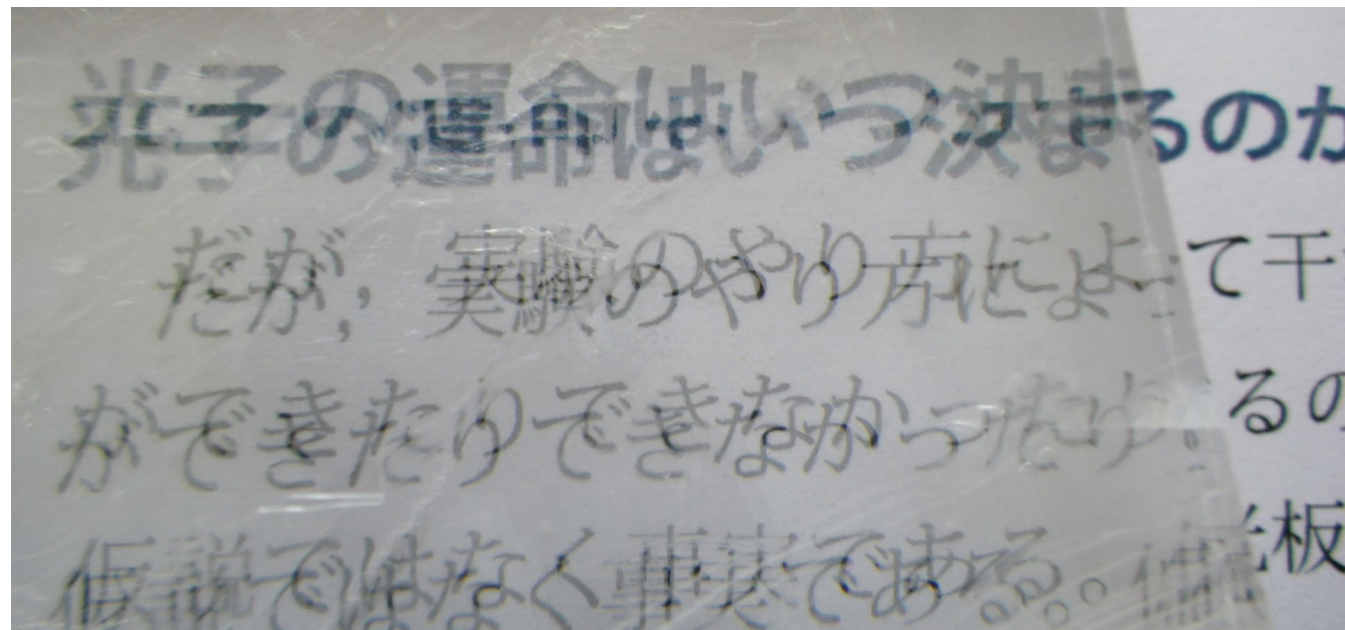 光子の運命はいつ決まるのか
だが，実験のやり方によって干
ができたりできなかったりするの
仮説ではなく事実である。偏光板